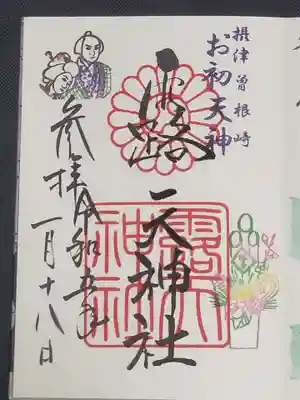 摂津曽根崎
お初天神
露天神社
露天
神社
参拝令和五年
一月十八日